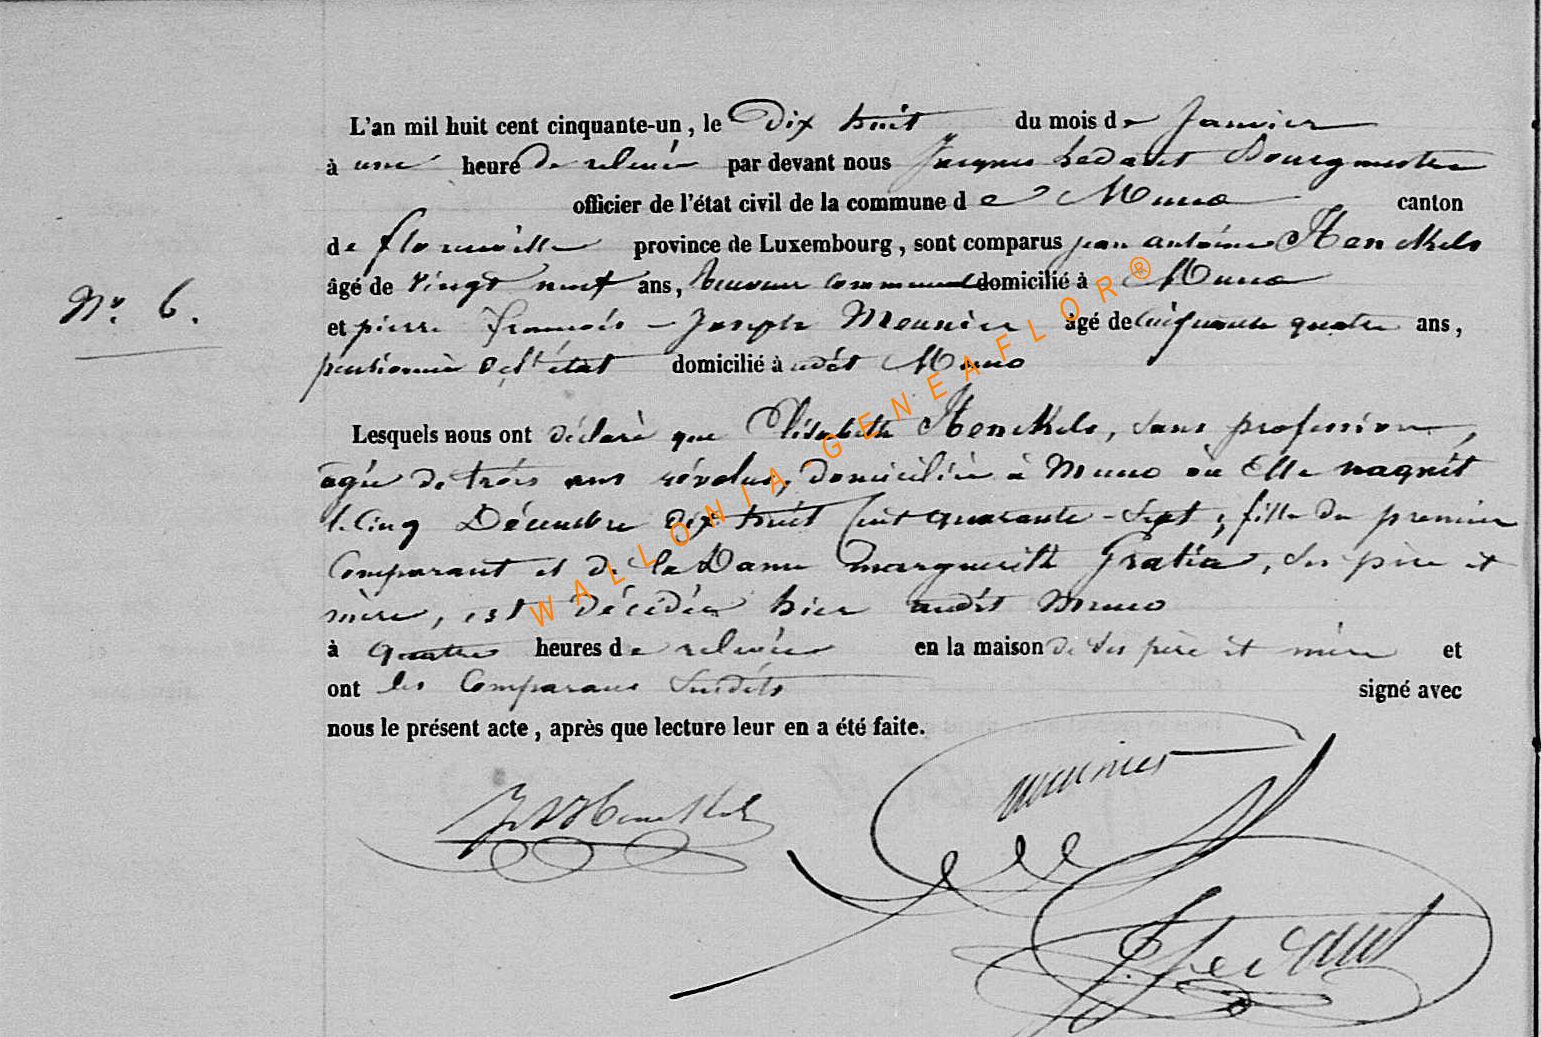 L'an mil huit cent cinquante-un, le Dix huit du mois de Janvier
à une heure de relevée par devant nous Jacques Ledant Bourgmestre
officier de l'état civil de la commune de Muno canton
de florenville province de Luxembourg, sont comparus jean antoine Henckels
âgé de vingt neuf ans, Receveur communal domicilié à Muno
Nr. 6.
et pierre françois - Joseph Meunier âgé de Cinquante quatre ans,
pentionnée de l'état domicilié à audit Muno
Lesquels nous ont déclaré que Elisabeth Henckels, sans profession,
agée de trois ans révolus, domiciliée à Muno où Elle naquit
le Cinq Décembre dix huit Cent quarante-sept, fille du premier
Comparant et de la Dame marguerith Gratia, ses père et
mère, est décédée hier audit Muno
à quatre heures de relevée en la maison de ses père et mère et
ont les Comparans susdits signé avec
nous le présent acte, après que lecture leur en a été faite.
meunier
J A Henckels
J. Ledant
WALLONIA-GENEAFLOR®